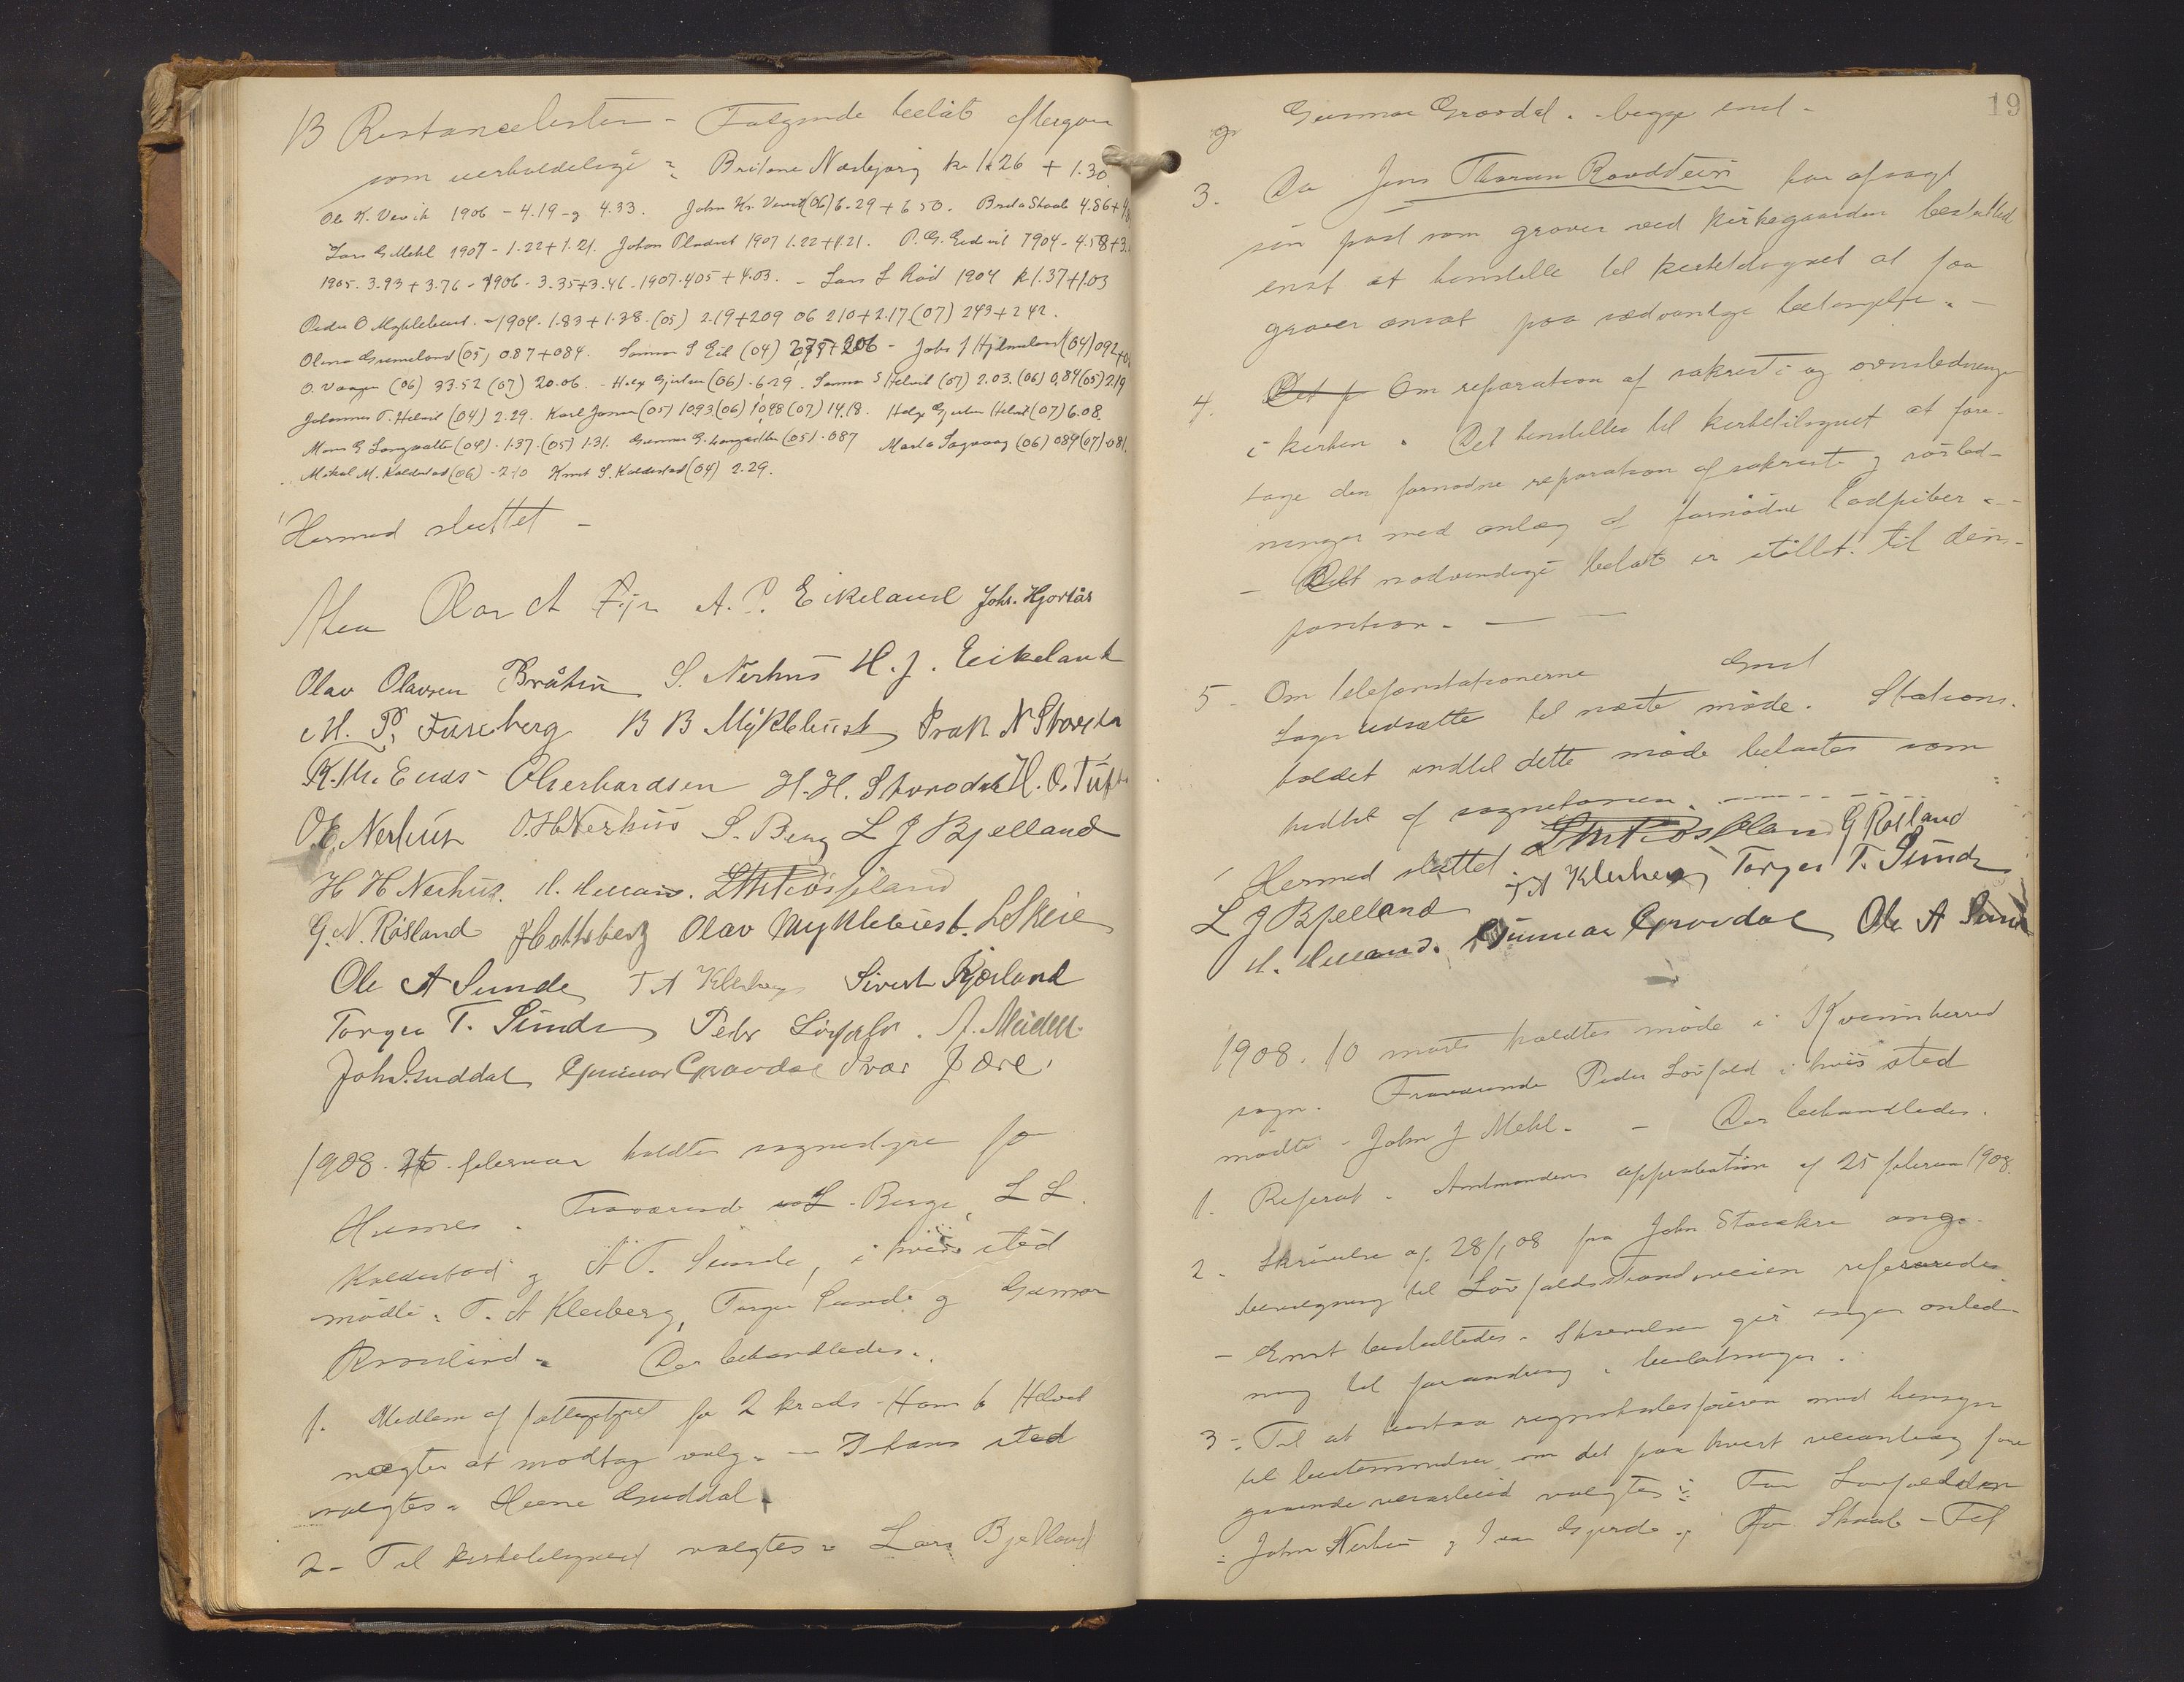 13 Restancelisten - Følgende beløb eftergives
som uerholdelige: Britane Næsbjørg kr 1.26 + 1.30
Ole K. Vevik 1906 - 4.19 og 4.33. John Kr. Vevik (06) 6.29 + 6.50. Brita Skaale 4.86+
Lars G Mehl 1907 - 1.22+1.21. Johan 1907 1.22+1.21. P. G. Eidsvik 1904 - 4.58+3.
1905. 3.93 + 3.76 - 1906 - 3.35+3.46 - 1907. 4.05 + 4.03. - Lars L Rød 1904 kr 1.37+1.03
Peder O Myklebust. - 1904. 1.83+1.38. (05) 2.19+2.09 06 2.10+2.17 (07) 2.43+2.42.
Olena Grimeland (05) 0.87+0.84. S Eik (04) + 206 - Johs J Hjelmeland (04) 092+
O. Vaagen (06) 33.52 (07) 20.06. - Helge Gjertsen (06) - 6.29. S Helvik (07) 2.03. (06) 0,84 (05) 2.19
Johannes T. Helvik (04) 2.29. Karl Jansen (05) 10.93 (06) 10.98 (07) 14.18. Helge Gjertsen Helvik (07) 6.08.
Mons G Langvatten (04) - 1.37. (05) 1.31. Gunnar G. (05) - 087 Marta Sagvaag (06) 084 (07) 081.
Mikal M. Kaldestad (06) - 2.10 Knut S. Kaldestad (04) 2.29.
Hermed sluttet -
Olav A A. P. Eikeland Johs. Hjortås
Olav Olavsen Bråtun S. Nerhus H. J. Eikeland
M. P. Fureberg B B Myklebust Prak N
K. M. Enes O Gerhardsen H. H. H. O. Tufte
O. E. Nerhus O. H Nerhus S. Berg L J Bjelland
H H Nerhus. H. L M Røssland
G. N. Røsland J Hatteberg Olav Myklebust. L Skeie
Ole A Sunde T A Kleiberg Sivert Kjærland
Torger T. Sunde Peder Løvfald. A. Meidell
Joh. Guddal Gunnar Gravdal Ivar Jære.
1908. februar holdtes sognestyre for
Husnes. Fraværende L. Berge, L L.
Kaldestad og A T. Sunde, i hvis sted
mødte: T. A Kleiberg, Torger Sunde og Gunnar
Der behandledes:
1. Medlem af fattigstyret for 2 kreds. Hans b Helvik
nægter at modtage valg. - I hans sted
valgtes: Guddal.
2 - Til kirketilsynet valgtes: Lars Bjelland
19
og Gunnar Gravdal. begge enst.
3. Da Jens Thoran Ravdstein har afsagt
sin post som graver ved kirkegaarden besluttet
enst at henstille til kirketilsynet at faa
graver ansat paa sædvanlige betingelser. -
4. Om reparation af sakresti og ovnsledninger
i kirken. Det henstilles til kirketilsynet at fore-
tage den fornødne reparation af sakresti og rørled-
ninger med anlæg af fornødne lodpiber. -
- Det nødvendige beløb er stillet til dis-
position. -
5 - Om telefonstationerne Enst
Sagen udsættes til næste møde. Stations-
holdet indtil dette møde belastes som
hidtil af sognekassen.
Hermed sluttet L M Røssland G Røsland
L J Bjelland T A Kleiberg Torger T. Sunde
H. Gunnar Gravdal Ole A Sunde
1908. 10 marts holdtes møde i Kvinnherred
sogn. Fraværende Peder Løvfald i hvis sted
mødte - John J Mehl. - Der behandledes.
1. Referat. Amtmandens approbation af 25 februar 1908.
2 - Skrivelse af 28/1 08 fra John angaa-
bevilgning til Løvfaldsstrandveien refereredes
- Enst besluttedes. Skrivelsen gir ingen anled-
ning til forandring i beslutninger.
3 - Til at bistaa regnskabsføreren med hensyn
til bestemmelse om det paa hvert veianlæg fore
gaaende veiarbeid valgtes: For Løvfaldstran
: John Nerhus og Ivar Gjerde. For Skaale - Fet